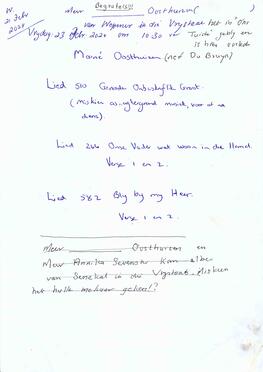 W.
21 Febr
2024
Begrafnis!!
Meer Oosthuizen (
van Wepener in die Vrystaat het in 'n
Vrydag 23 Febr. 2024 om 10:30 vm
Marné Oosthuizen (née Du Bruyn)
Lied 510 Genade Onbeskryflik Groot.
(miskien as agtergrond musiek, voor of na
diens).
Lied 266 Onse Vader wat woon in die Hemel.
Verse 1 en 2.
Lied 582 Bly by my Heer.
Verse 1 en 2.
Meer Oosthuizen en
Mev Annika Sevenster kom albei
van Senekal in die Vrystaat. Miskien
het hulle mekaar geken!?